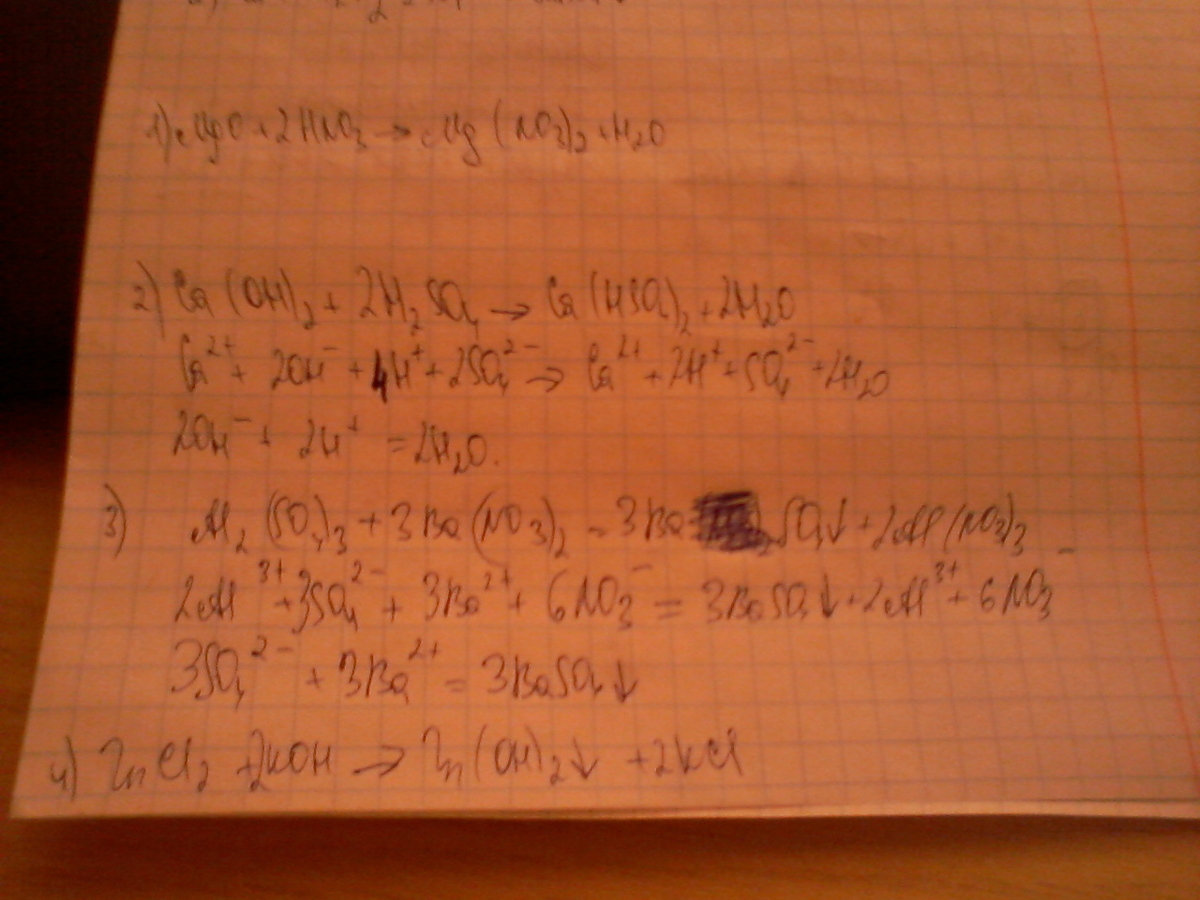 1) MgO + 2HNO3 → Mg (NO3)2 + H2O
2) Ca (OH)2 + 2H2SO4 → Ca (HSO4)2 + 2H2O
Ca2+ + 2OH- + 4H+ + 2SO42- → Ca2+ + 2H+ + SO42- + 2H2O
2OH- + 2H+ = 2H2O.
3) Al2 (SO4)3 + 3Ba (NO3)2 = 3Ba SO4↓ + 2Al (NO3)3
2Al3+ + 3SO42- + 3Ba2+ + 6NO3- = 3BaSO4↓ + 2Al3+ + 6NO3-
3SO42- + 3Ba2+ = 3BaSO4↓
4) ZnCl2 + 2KOH → Zn (OH)2↓ + 2KCl